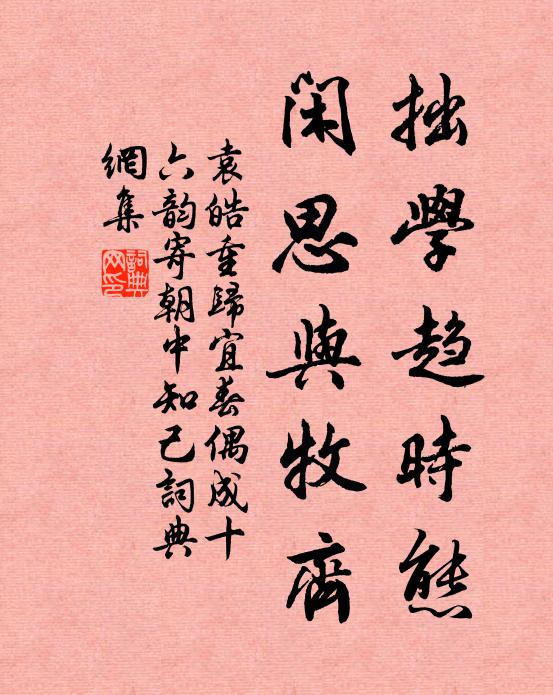 拙學趋時態
閑思與牧齊
袁皓重歸宜春偶成十
六韵寄朝中知己詞典
網集
詞典
网印